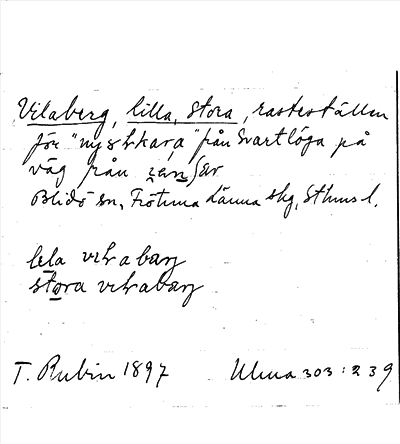 Vilaberg, lilla, stora, rasteställen
för "nyskkara" från Svartlöga på
väg från
Blidö sn, Frötuna Länna skg, Sthms l.
lila vilrabarg
stora vilrabarg
T. Rubin 1897 Ulma 303:239